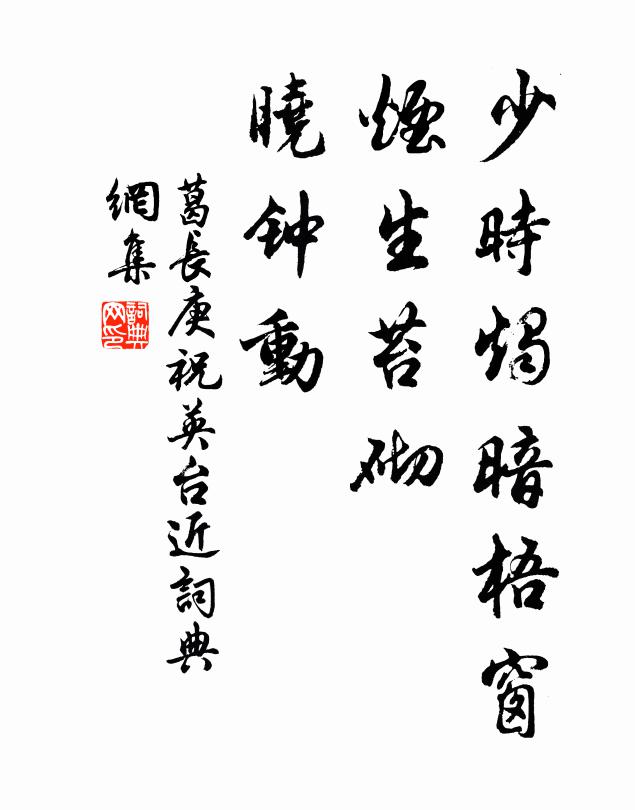 少時燭暗梧窗
煙生苔砌
曉钟動
葛長庚祝英台近詞典
網集
詞典网印